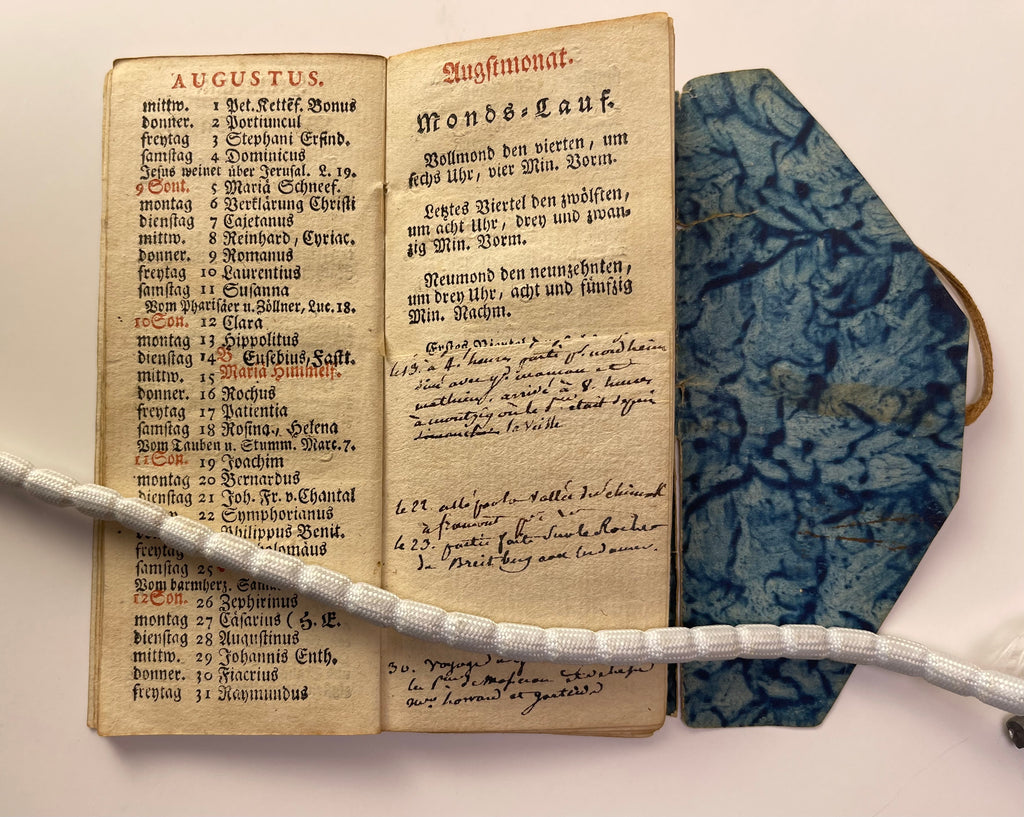 AUGUSTUS.
mittw. 1 Pet. Kettēf. Bonus
donner. 2 Portiuncul
freytag 3 Stephani Erfind.
samstag 4 Dominicus
Jesus weinet über Jerusal. L. 19.
9 Sont. 5 Mariä Schneef.
montag 6 Verklärung Christi
dienstag 7 Cajetanus
mittw. 8 Reinhard, Cyriac.
donner. 9 Romanus
freytag 10 Laurentius
samstag 11 Susanna
Vom Pharisäer u. Zöllner, Luc. 18.
10 Son. 12 Clara
montag 13 Hippolitus
dienstag 14 Eusebius, Fastt.
mittw. 15 Mariä Himmelf.
donner. 16 Rochus
freytag 17 Patientia
samstag 18 Rosina, Helena
Vom Tauben u. Stumm. Marc. 7.
11 Son. 19 Joachim
montag 20 Bernardus
dienstag 21 Joh. Fr. v. Chantal
22 Symphorianus
Philippus Benit.
freytag
samstag 25
Vom barmherz.
12 Son. 26 Zephirinus
montag 27 Cäsarius ( H. E.
dienstag 28 Augustinus
mittw. 29 Johannis Enth.
donner. 30 Fiacrius
freytag 31 Raymundus
Augstmonat.
Monds-Lauf.
Vollmond den vierten, um
sechs Uhr, vier Min. Vorm.
Letztes Viertel den zwölften,
um acht Uhr, drey und zwan-
zig Min. Vorm.
Neumond den neunzehnten,
um drey Uhr, acht und fünfzig
Min. Nachm.
Erstes Viertel
le 13. à 4. heures partis pr. nordheim
avec maman et
mathieu, arrivé à 8. heures
à où le était depuis
la veille
le 22. allé par la vallée de
à framont
le 23. partie faite sur le Rocher
du
30. voyage
le de et
Mrs. howard et